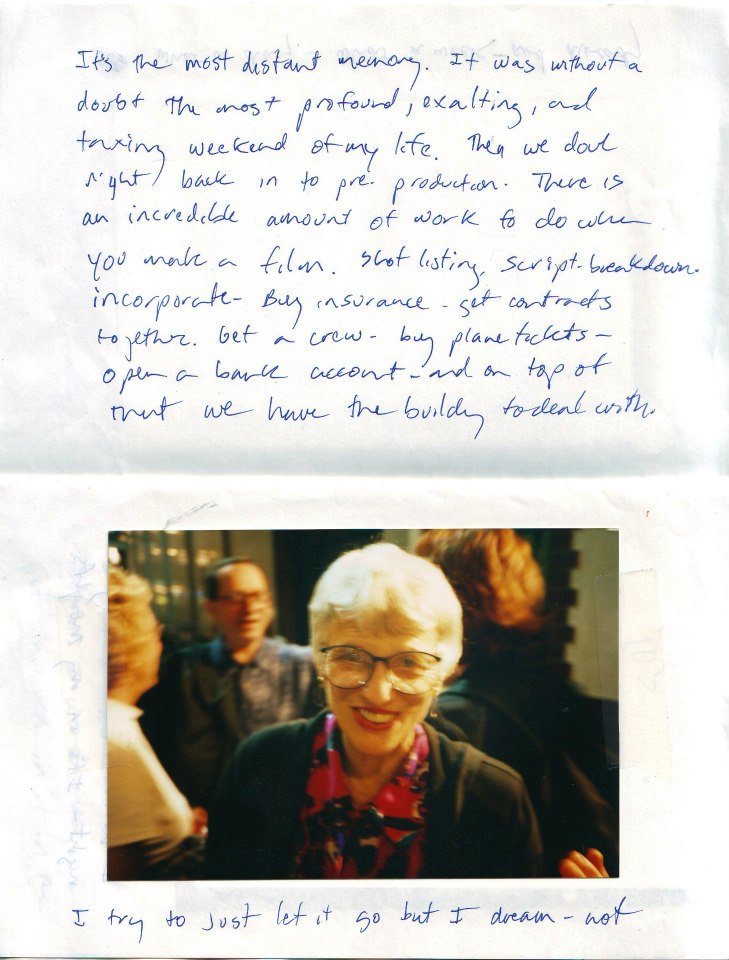 It's the most distant memory. It was without a
doubt the most profound, exalting, and
taxing weekend of my life. Then we
right back in to pre production. There is
an incredible amount of work to do when
you make a film. Shot listing, script-breakdown.
incorporate- Buy insurance - get contracts
together. Get a crew- buy plane tickets-
open a bank account - and on top of
that we have the building to deal with.
I try to just let it go but I dream - not